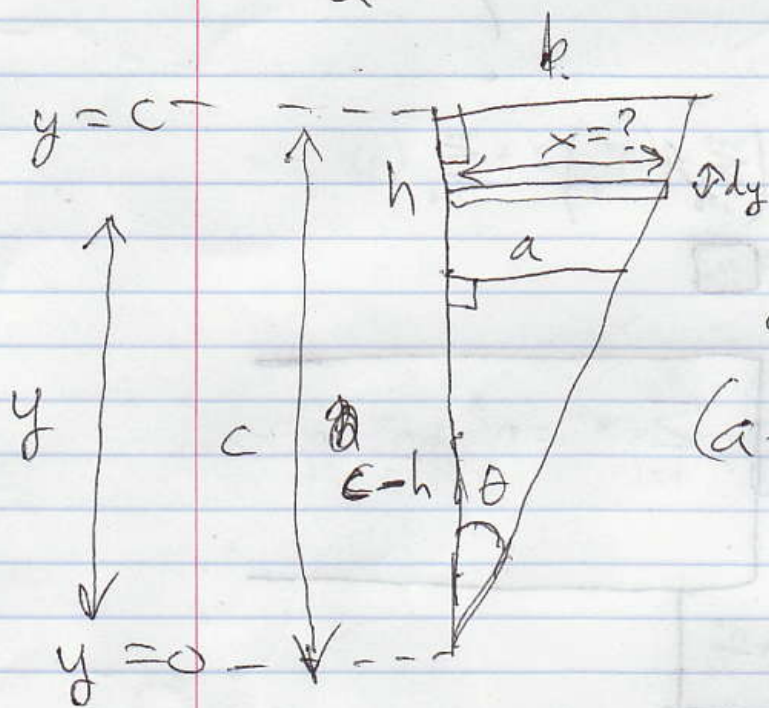 b
y = c
x = ?
h
dy
a
y
c
(a
c-h
θ
y = 0